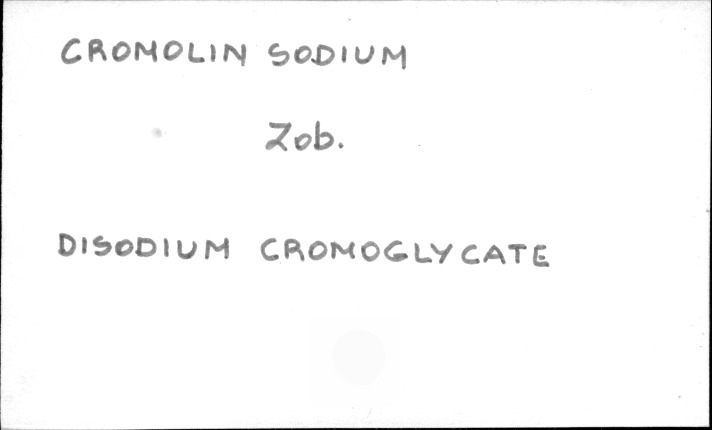 CROMOLIN SODIUM
Zob.
DISODIUM CROMOGLYCATE